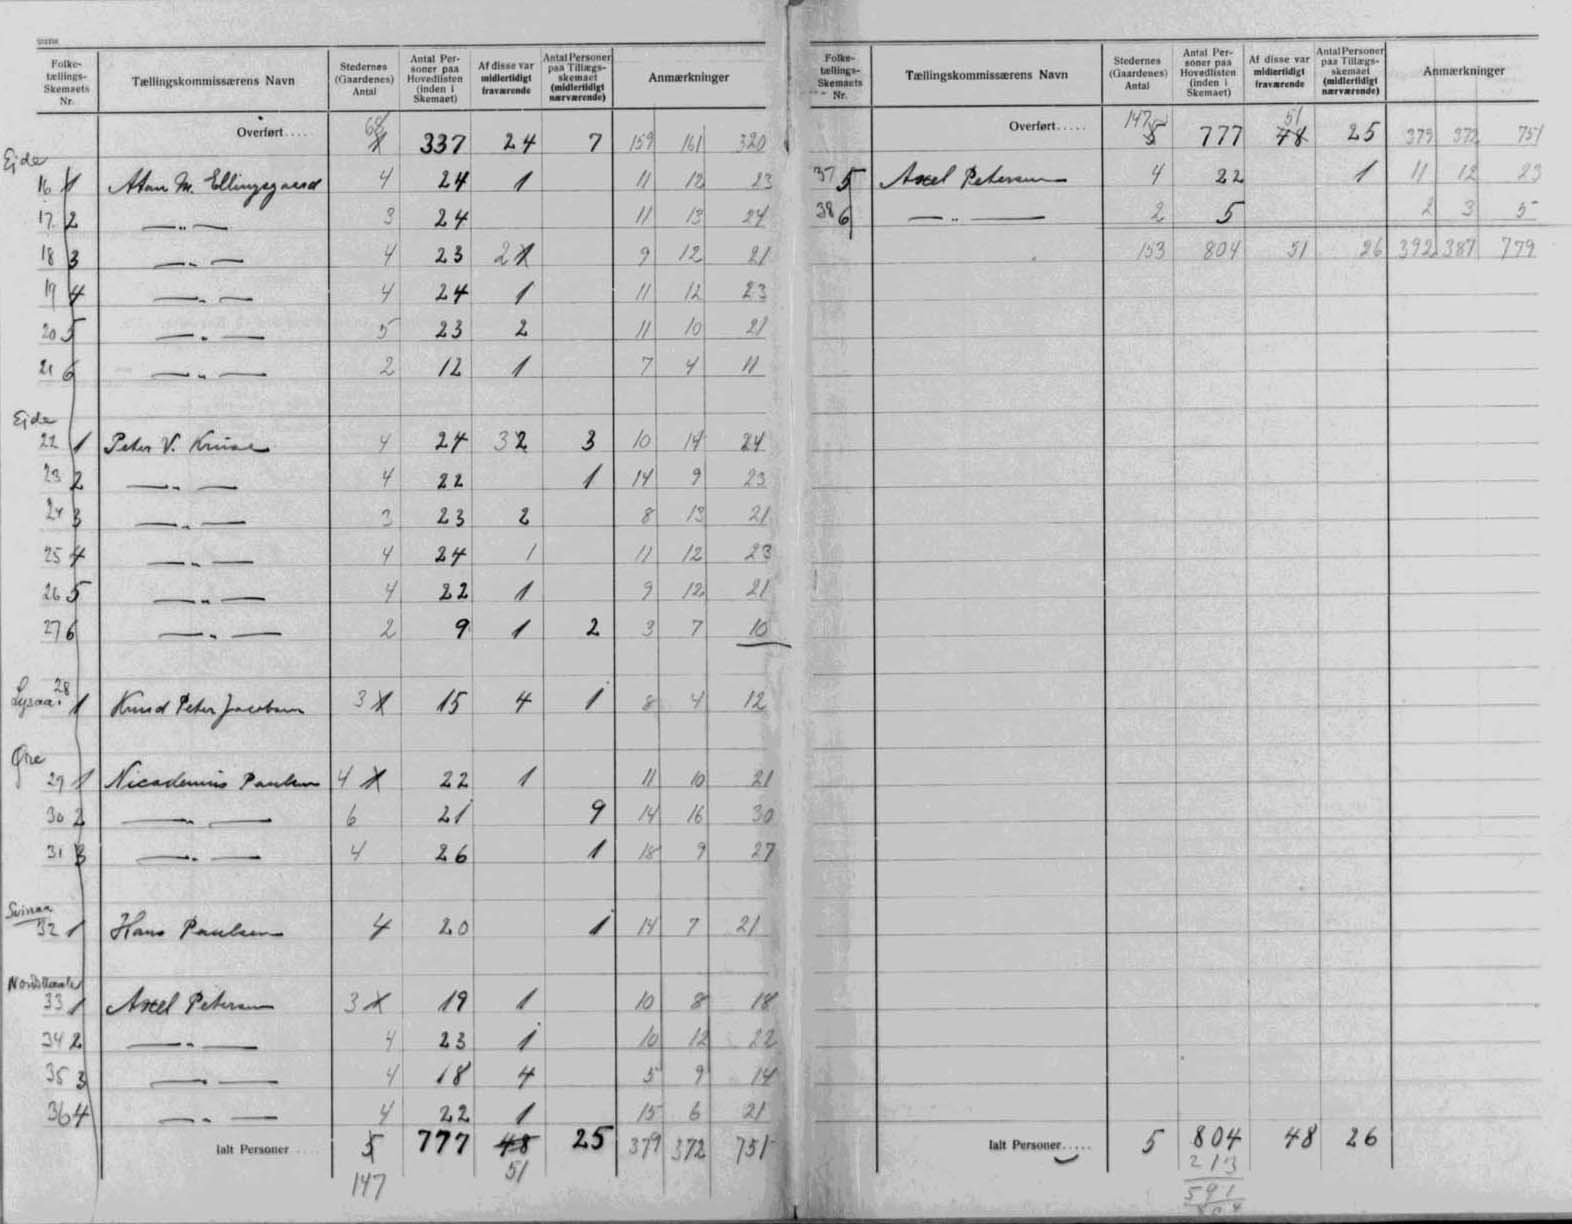 Folke-tællings-Skemaets Nr. Tællingskommissærens Navn Stedernes (Gaardenes) Antal Antal Personer paa Hovedlisten (inden i Skemaet) Af disse var midlertidigt fraværende Antal Personer paa Tillægs-skemaet (midlertidigt nærværende) Anmærkninger
Overført.... 68 337 24 7 159 161 320
Ejde
16 1 Atan M. Ellingsgaard 4 24 1 11 12 23
17 2 —„— 3 24 11 13 24
18 3 —„— 4 23 2 1 9 12 21
19 4 —„— 4 24 1 11 12 23
20 5 —„— 5 23 2 11 10 21
21 6 —„— 2 12 1 7 4 11
Ejde
22 1 Peter V. Kruse 4 24 3 2 3 10 14 24
23 2 —„— 4 22 1 14 9 23
24 3 —„— 3 23 2 8 13 21
25 4 —„— 4 24 1 11 12 23
26 5 —„— 4 22 1 9 12 21
27 6 —„— 2 9 1 2 3 7 10
Lysaa. 28 1 Knud Peter Jacobsen 3 1 15 4 1 8 4 12
Øre
29 1 Nicodemus Paulsen 4 1 22 1 11 10 21
30 2 —„— 6 21 9 14 16 30
31 3 —„— 4 26 1 18 9 27
Svinaa
32 1 Hans Paulsen 4 20 1 14 7 21
33 1 Axel Petersen 3 1 19 1 10 8 18
34 2 —„— 4 23 1 10 12 22
35 3 —„— 4 18 4 5 9 14
36 4 —„— 4 22 1 15 6 21
Ialt Personer .... 5 777 48 25 379 372 751
147 51
Folke-tællings-Skemaets Nr. Tællingskommissærens Navn Stedernes (Gaardenes) Antal Antal Personer paa Hovedlisten (inden i Skemaet) Af disse var midlertidigt fraværende Antal Personer paa Tillægs-skemaet (midlertidigt nærværende) Anmærkninger
Overført..... 147 5 777 51 48 25 379 372 751
37 5 Axel Petersen 4 22 1 11 12 23
38 6 —„— 2 5 2 3 5
153 804 51 26 392 387 779
Ialt Personer..... 5 804 48 26
213
591